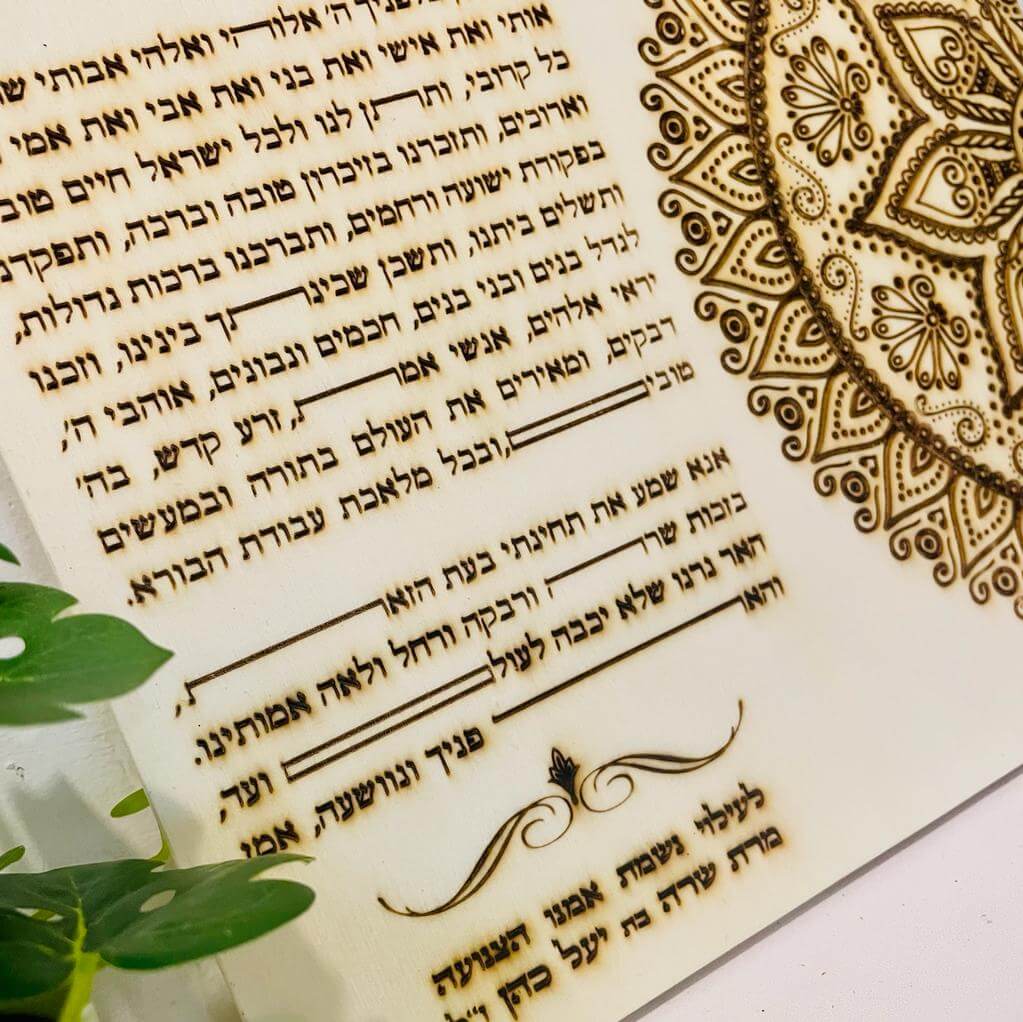 לפניך ה' אלוהי ואלהי אבותי
אותי ואת אישי ואת בני ואת אבי ואת אמי
כל קרובי, ותתן לנו ולכל ישראל חיים
וארוכים, ותזכרנו בזיכרון טובה וברכה, ותפקדנו
בפקודת ישועה ורחמים, ותברכנו ברכות גדולות,
ותשלים ביתנו, ותשכן שכינתך בינינו, וזכנו
לגדל בנים ובני בנים, חכמים ונבונים, אוהבי ה',
יראי אלהים, אנשי אמת, זרע קדש, בה'
דבקים, ומאירים את העולם בתורה ובמעשים
טובים, ובכל מלאכת עבודת הבורא.
אנא שמע את תחינתי בעת הזאת,
בזכות שרה ורבקה ורחל ולאה אמותינו.
האר נרנו שלא יכבה לעולם ועד,
והאר פניך ונוושעה, אמן
לעילוי נשמת אמנו הצנועה
מרת שרה בת יעל כהן